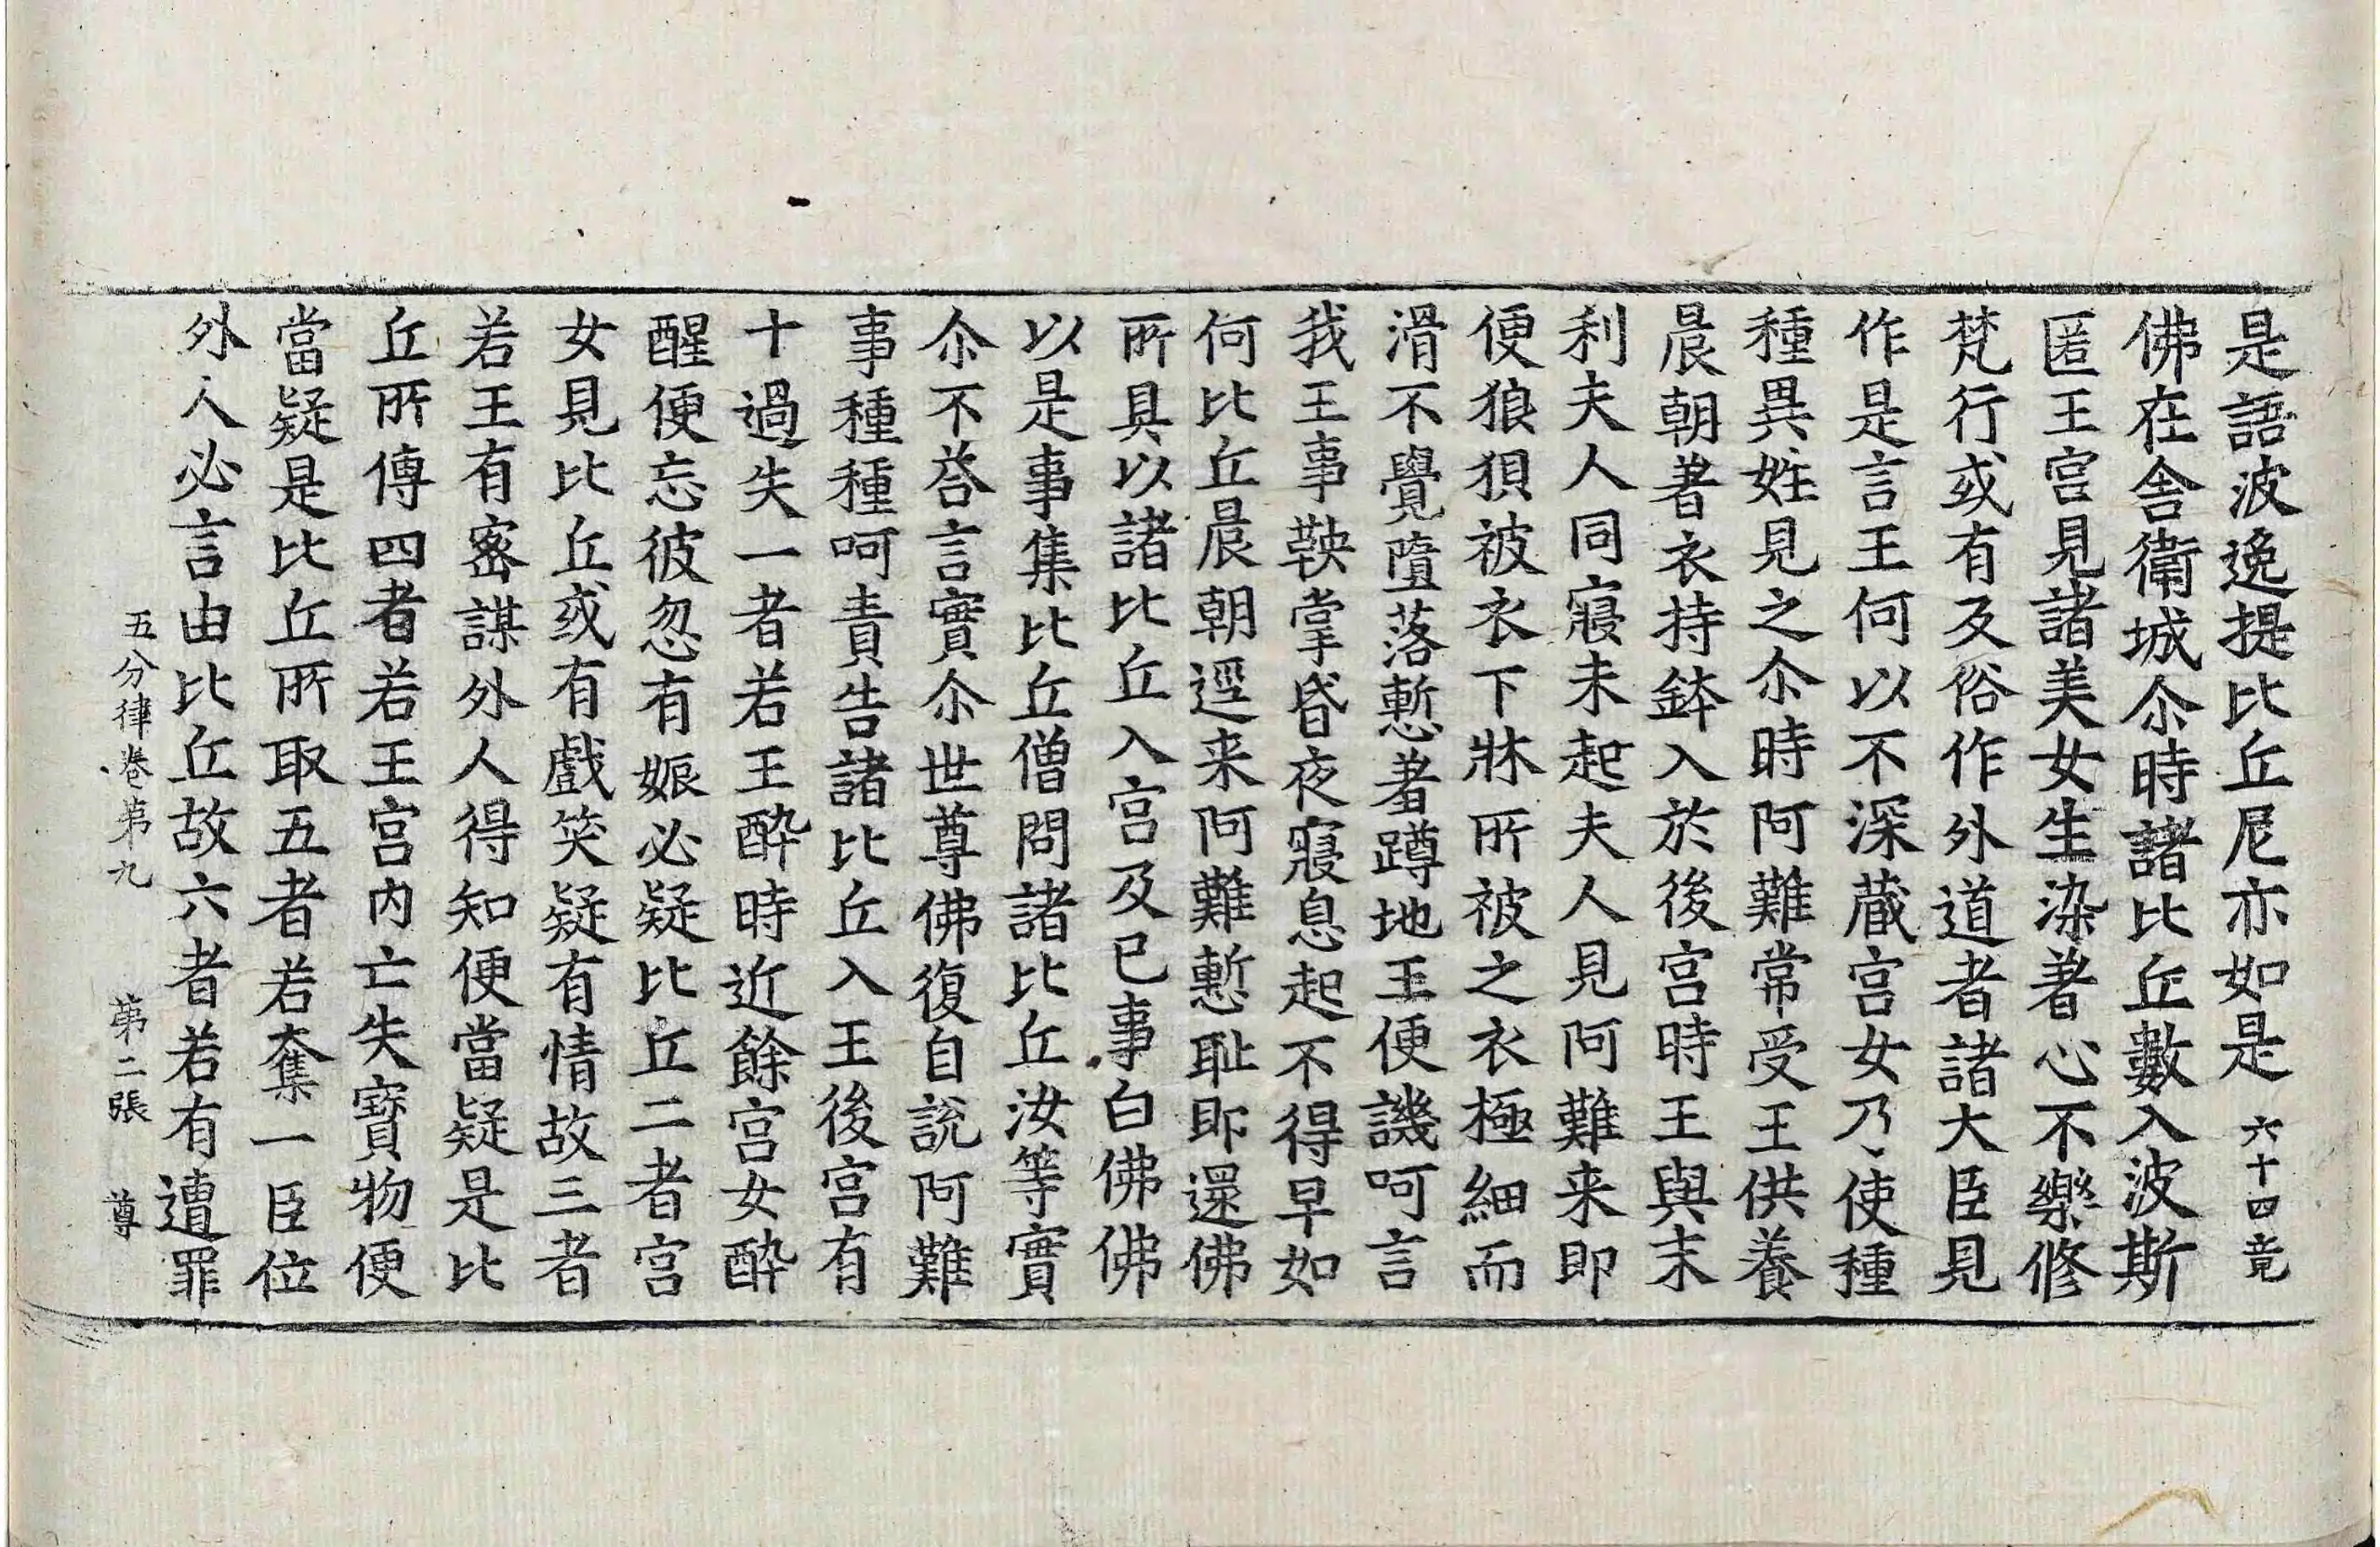 是語波逸提比丘尼亦如是 六十四竟
佛在舍衛城尒時諸比丘數入波斯
匿王宮見諸美女生染著心不樂修
梵行或有反俗作外道者諸大臣見
作是言王何以不深蔵宮女乃使種
種異姓見之尒時阿難常受王供養
晨朝著衣持鉢入於後宮時王與末
利夫人同寢未起夫人見阿難来即
便狼狽被衣下牀所被之衣極細而
滑不覺墮落慙著蹲地王便譏呵言
我王事鞅掌昏夜寢息起不得早如
何比丘晨朝逕来阿難慙恥即還佛
所具以諸比丘入宮及已事白佛佛
以是事集比丘僧問諸比丘汝等實
尒不荅言實尒世尊佛復自說阿難
事種種呵責告諸比丘入王後宮有
十過失一者若王醉時近餘宮女醉
醒便忘彼忽有娠必疑比丘二者宮
女見比丘或有戲笑疑有情故三者
若王有密謀外人得知便當疑是比
丘所傳四者若王宮内亡失寶物便
當疑是比丘所取五者若奪一臣位
外人必言由比丘故六者若有遭罪
五分律卷第九 第二張 尊